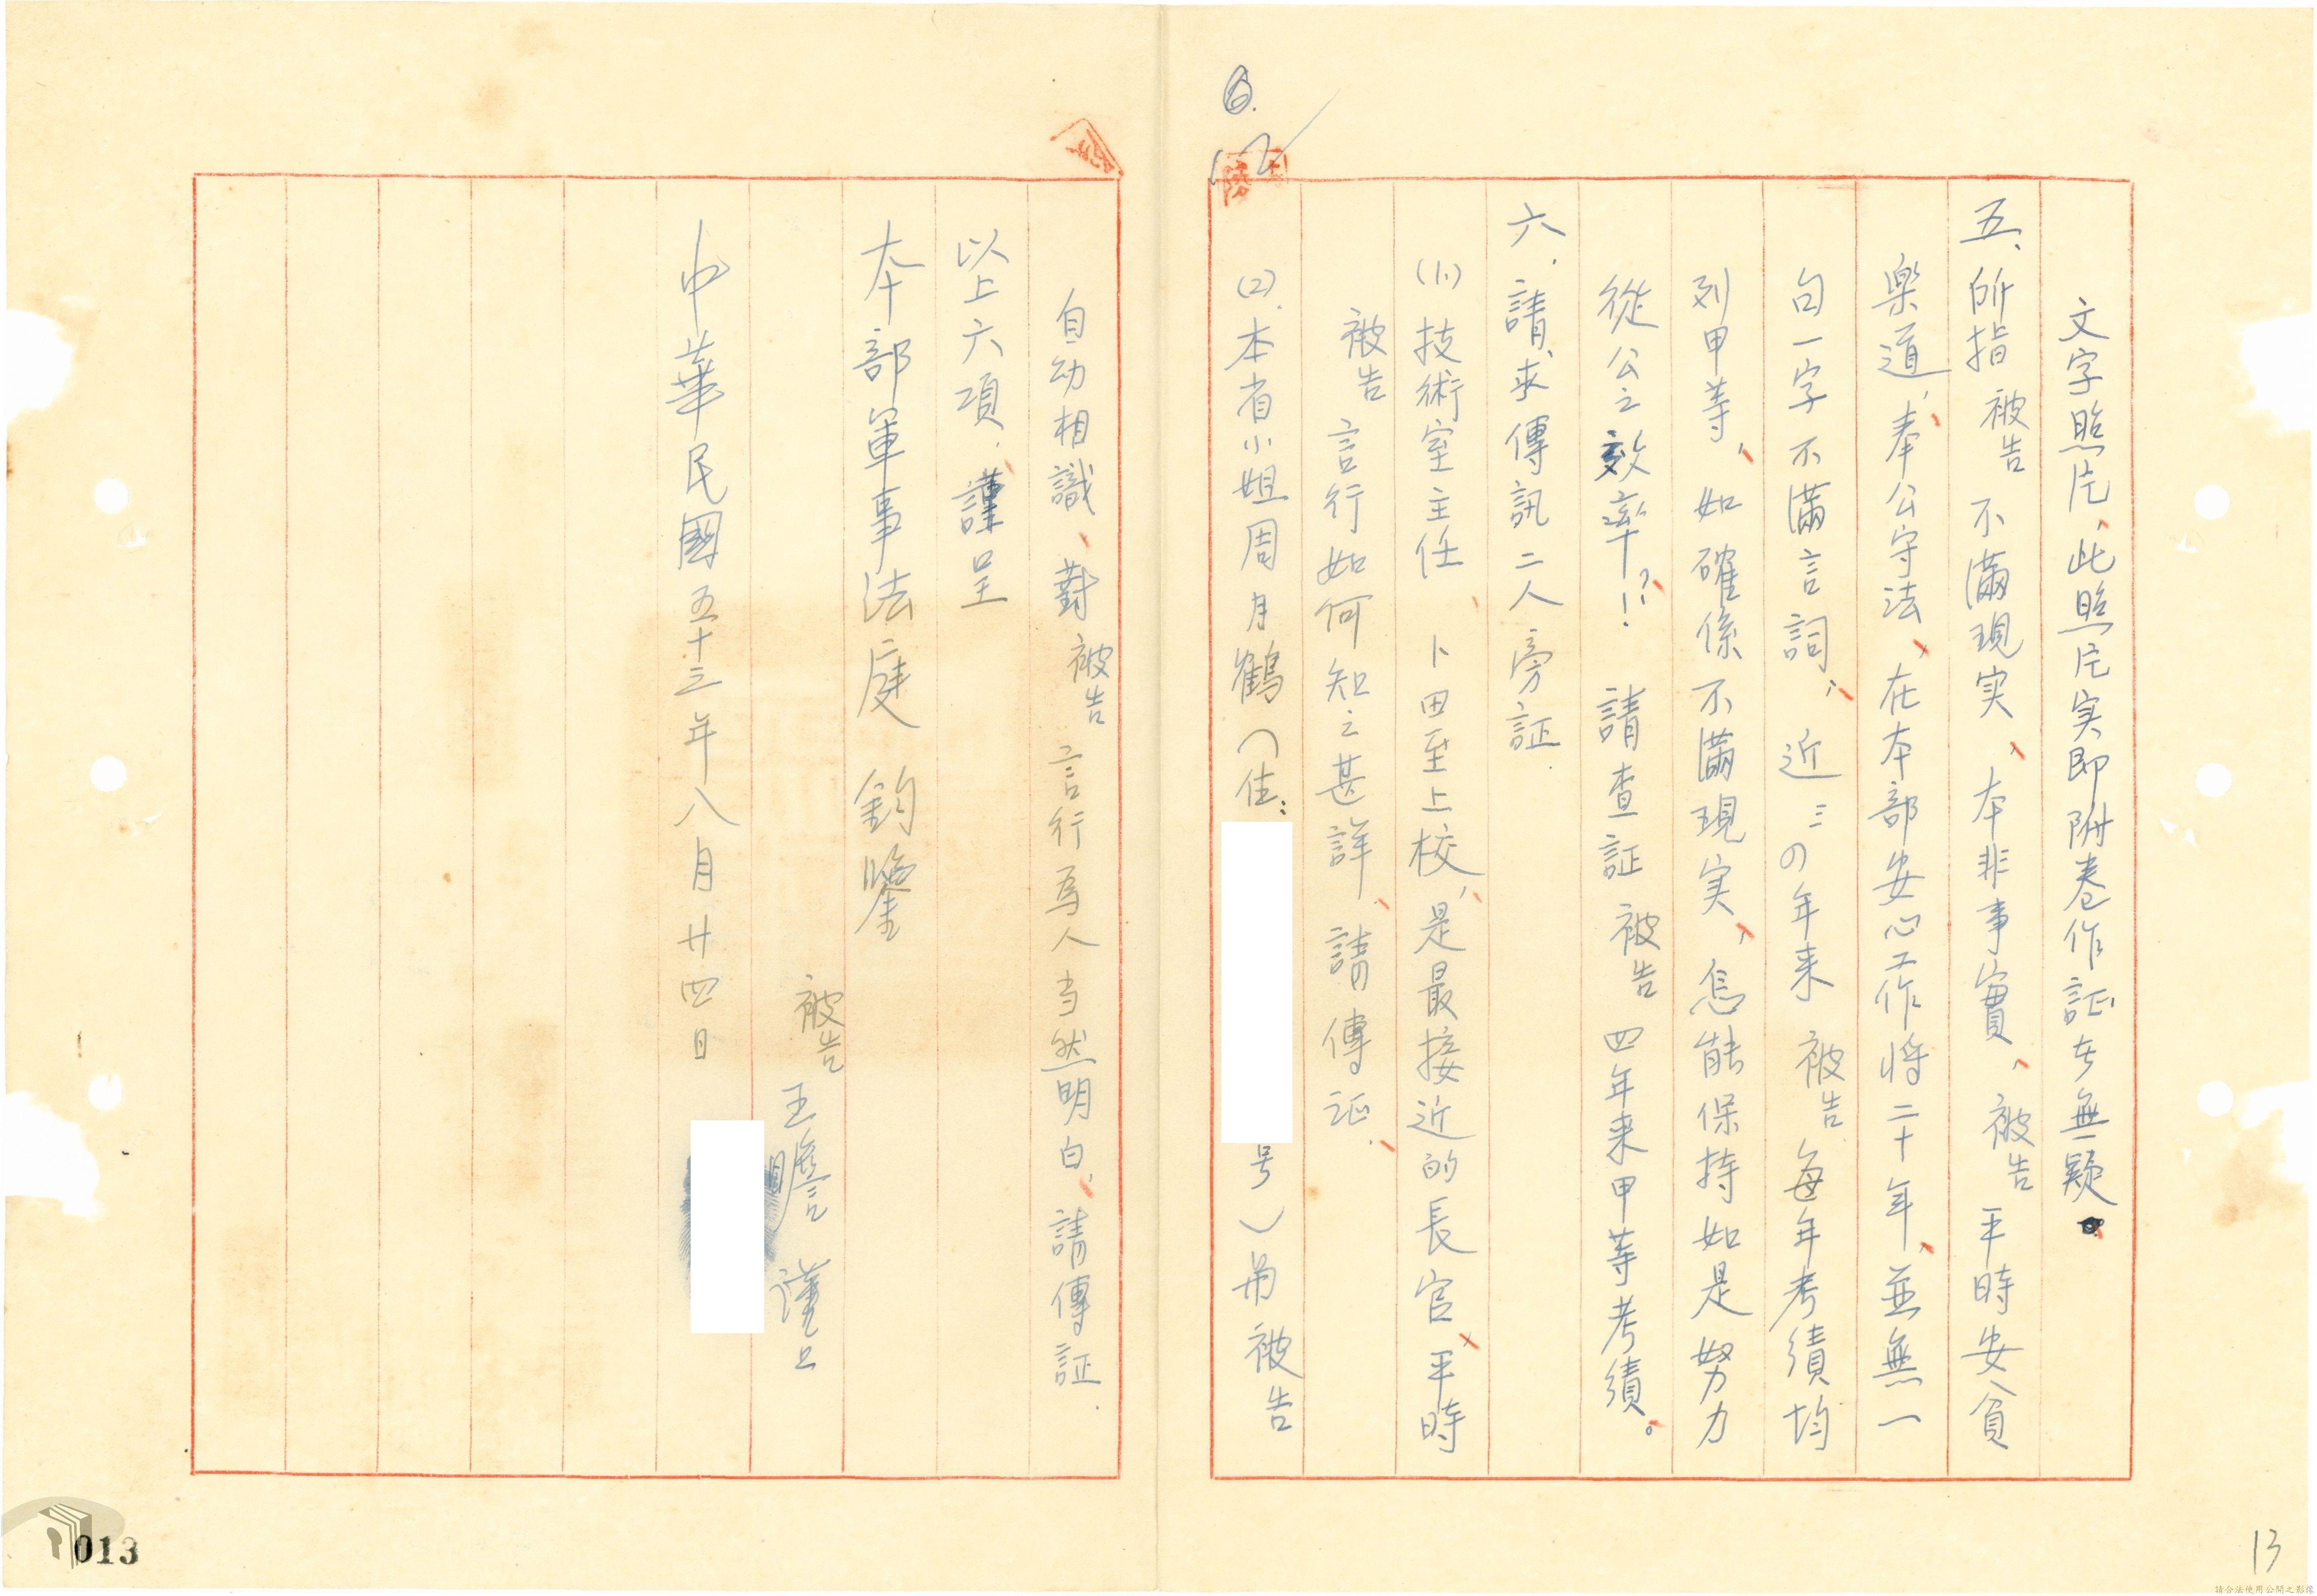 文字照片、此照片实即附卷作証方無疑。
五、所指 被告 不滿現実、本非事實、被告 平時安貧
樂道，奉公守法、在本部安心工作将二十年、並無一
句一字不滿言詞，近三の年来 被告 每年考績均
列甲等、如確係不滿現実、怎能保持如是努力
從公之效率!?! 請查証 被告 四年来甲等考績。
六、請求傳訊二人旁証.
(1)技術室主任 卜田至上校，是最接近的長官、平時
被告 言行如何知之甚詳、請傳証.
(2).本省小姐周月鶴（住: 号）弟被告
自幼相識、對 被告 言行為人当然明白，請傳証.
以上六項，謹呈
本部軍事法庭 鈞鑒
被告 王瞻 謹上
中華民國五十三年八月廿四日
013
13
請合法使用公開之影像